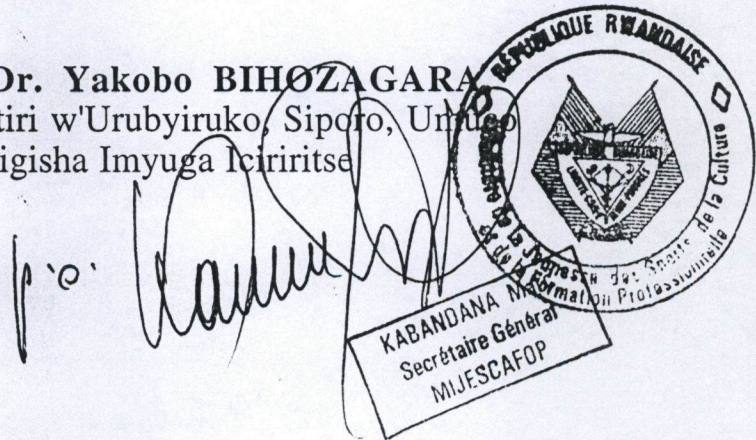 Dr. Yakobo BIHOZAGARA
tiri w'Urubyiruko, Siporo, Umuco
igisha Imyuga Iciriritse
p.o.
RÉPUBLIQUE RWANDAISE
de la Jeunesse des Sports de la Culture
et de la Formation Professionnelle
KABANDANA
Secrétaire Général
MIJESCAFOP